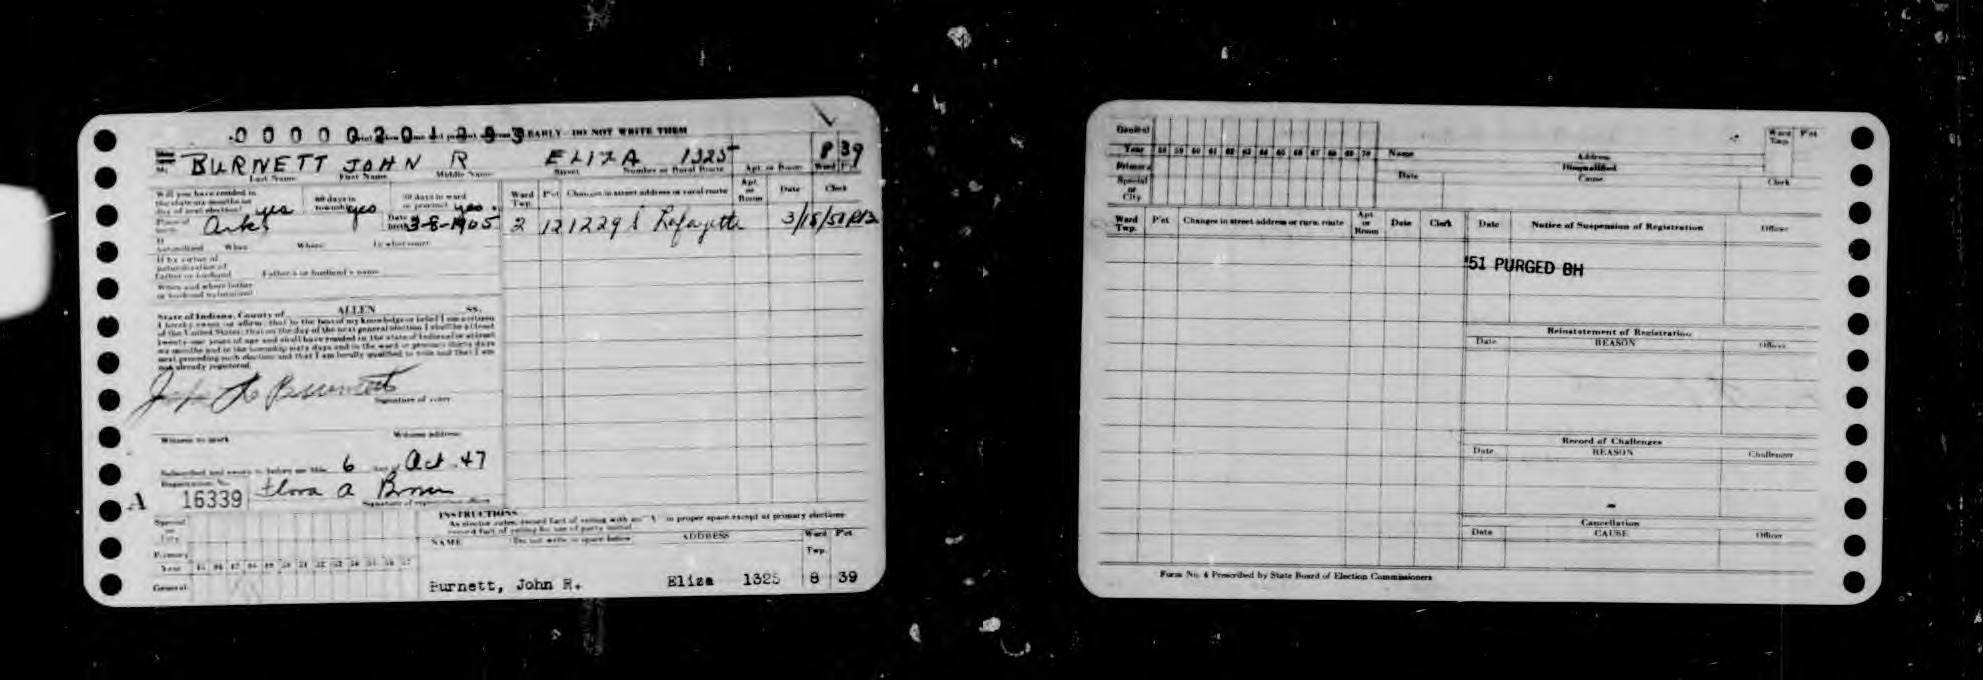 00000201293
EARLY - DO NOT WRITE THEM
BURNETT JOHN R ELIZA 1325 8 39
Last Name First Name Middle Name Street Number or Rural Route Apt. or Room Ward P'ct
Will you have resided in the state six months on day of next election? yes 60 days in township? yes 30 days in ward or precinct? yes
Ark. Date birth 3-8-1905
If naturalized When Where In what court
If by virtue of naturalization of Father or husband Father's or husband's name
When and where father or husband naturalized
State of Indiana, County of ALLEN SS.
I hereby swear (or affirm) that to the best of my knowledge or belief I am a citizen
of the United States; that on the day of the next general election I shall be at least
twenty-one years of age and shall have resided in the state of Indiana for at least
six months and in the township sixty days and in the ward or precinct thirty days
next preceding such election and that I am legally qualified to vote and that I am
not already registered.
John R Burnett
Signature of voter
Witness to mark Witness address
Subscribed and sworn to before me this 6 day of Oct. 47
Registration No.
A 16339 Flora A
Signature of registration officer
Ward Twp. P'ct Changes in street address or rural route Apt. or Room Date Clerk
2 12 1229 S Lafayette
INSTRUCTIONS
NAME (Do not write in space below) ADDRESS Ward Twp. P'ct
Special or City
Primary
Year 45 46 47 48 49 50 51 52 53 54 55 56 57
General
Burnett, John R. Eliza 1325 8 39
General
Year 58 59 60 61 62 63 64 65 66 67 68 69 70 Name Address Ward Twp. P'ct
Primary Disqualified
Special or City Date Cause Clerk
Ward Twp. P'ct Changes in street address or rural route Apt. or Room Date Clerk Date Notice of Suspension of Registration Officer
'51 PURGED BH
Reinstatement of Registration
Date REASON Officer
Record of Challenges
Date REASON Challenger
Cancellation
Date CAUSE Officer
Form No. 4 Prescribed by State Board of Election Commissioners